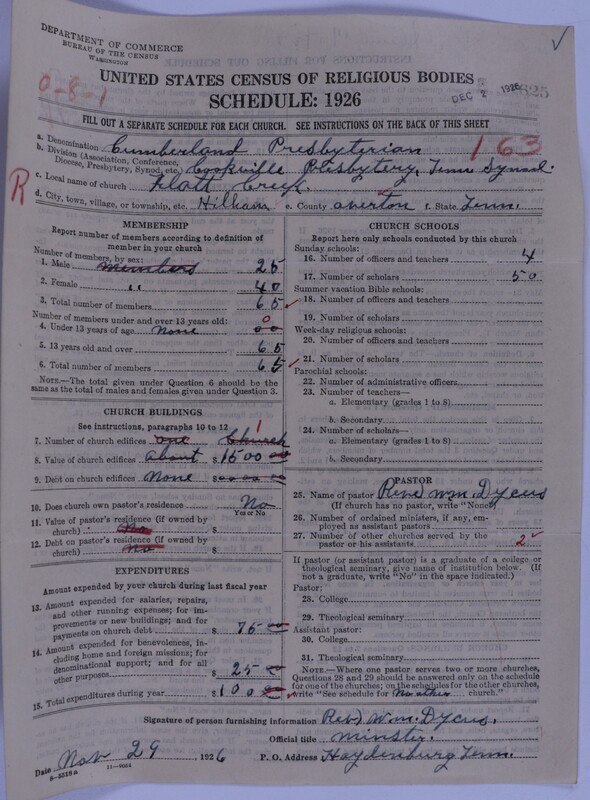 DEPARTMENT OF COMMERCE
BUREAU OF THE CENSUS
WASHINGTON
UNITED STATES CENSUS OF RELIGIOUS BODIES
DEC 2 1926
SCHEDULE: 1926
0-8-1
FILL OUT A SEPARATE SCHEDULE FOR EACH CHURCH. SEE INSTRUCTIONS ON THE BACK OF THIS SHEET
a. Denomination Cumberland Presbyterian 163
b. Division (Association, Conference, Diocese, Presbytery, Synod, etc.) Cookville Presbytery, Tenn Synod.
R
c. Local name of church Flatt Creek.
d. City, town, village, or township, etc. Hilham e. County overton f. State Tenn.
MEMBERSHIP
Report number of members according to definition of member in your church
Number of members, by sex:
1. Male members 25
2. Female " 40
3. Total number of members 65
Number of members under and over 13 years old: 0
4. Under 13 years of age None 00
5. 13 years old and over 65
6. Total number of members 65
NOTE.—The total given under Question 6 should be the same as the total of males and females given under Question 3.
CHURCH BUILDINGS
See instructions, paragraphs 10 to 12 1
7. Number of church edifices one Church
8. Value of church edifices about $ 1500
9. Debt on church edifices None $
10. Does church own pastor's residence No
Yes or No
11. Value of pastor's residence (if owned by church) No $
12. Debt on pastor's residence (if owned by church) No $
EXPENDITURES
Amount expended by your church during last fiscal year
13. Amount expended for salaries, repairs, and other running expenses; for improvements or new buildings; and for payments on church debt $ 75
14. Amount expended for benevolences, including home and foreign missions; for denominational support; and for all other purposes $ 25
15. Total expenditures during year $ 100
CHURCH SCHOOLS
Report here only schools conducted by this church
Sunday schools:
16. Number of officers and teachers 4
17. Number of scholars 50
Summer vacation Bible schools:
18. Number of officers and teachers
19. Number of scholars
Week-day religious schools:
20. Number of officers and teachers
21. Number of scholars
Parochial schools:
22. Number of administrative officers
23. Number of teachers—
a. Elementary (grades 1 to 8)
b. Secondary
24. Number of scholars—
a. Elementary (grades 1 to 8)
b. Secondary
PASTOR
25. Name of pastor Rev) Wm. Dycus
(If church has no pastor, write "None")
26. Number of ordained ministers, if any, employed as assistant pastors
27. Number of other churches served by the pastor or his assistants 2
If pastor (or assistant pastor) is a graduate of a college or theological seminary, give name of institution below. (If not a graduate, write "No" in the space indicated.)
Pastor:
28. College
29. Theological seminary
Assistant pastor:
30. College
31. Theological seminary
NOTE.—Where one pastor serves two or more churches, Questions 28 and 29 should be answered only on the schedule for one of the churches; on the schedules for the other churches, write "See schedule for No other church."
Signature of person furnishing information Rev) Wm. Dycus.
Official title minster.
Date Nov 29 1926 P. O. Address Haydenburg Tenn.
8-5518a 11-9054